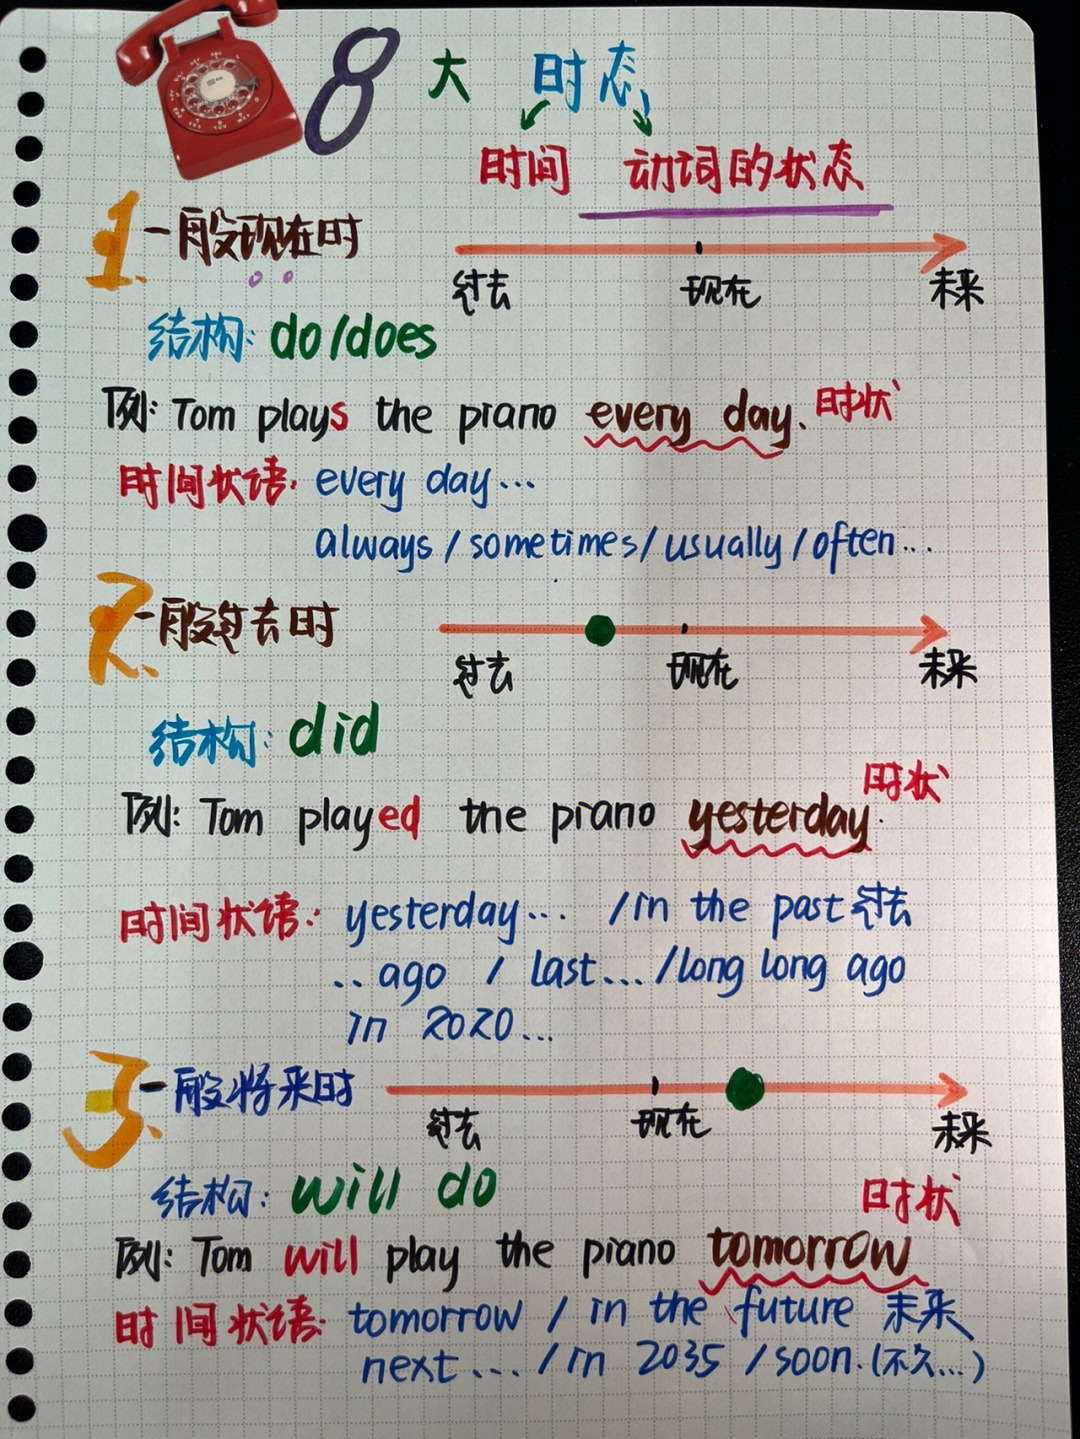 8大时态
时间 动词的状态
1. 一般现在时
过去 现在 未来
结构: do/does
例: Tom plays the piano every day. 时状
时间状语: every day...
always / sometimes / usually / often...
2. 一般过去时
过去 现在 未来
结构: did
时状
例: Tom played the piano yesterday.
时间状语: yesterday... / in the past 过去
..ago / last... / long long ago
in 2020...
3. 一般将来时
过去 现在 未来
结构: will do
时状
例: Tom will play the piano tomorrow
时间状语: tomorrow / in the future 未来
next ... / in 2035 / soon.(不久...)